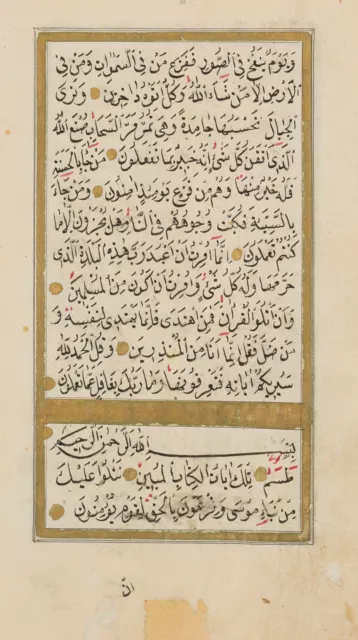 وَيَوْمَ يُنْفَخُ فِي الصُّورِ فَفَزِعَ مَنْ فِي السَّمٰوَاتِ وَمَنْ فِي
الْاَرْضِ اِلَّا مَنْ شَاءَ اللّٰهُ وَكُلٌّ اَتَوْهُ دَاخِرِينَ وَتَرَى
الْجِبَالَ تَحْسَبُهَا جَامِدَةً وَهِيَ تَمُرُّ مَرَّ السَّحَابِ صُنْعَ اللّٰهِ
الَّذِي اَتْقَنَ كُلَّ شَيْءٍ اِنَّهُ خَبِيرٌ بِمَا تَفْعَلُونَ مَنْ جَاءَ بِالْحَسَنَةِ
فَلَهُ خَيْرٌ مِنْهَا وَهُمْ مِنْ فَزَعٍ يَوْمَئِذٍ اٰمِنُونَ وَمَنْ جَاءَ
بِالسَّيِّئَةِ فَكُبَّتْ وُجُوهُهُمْ فِي النَّارِ هَلْ تُجْزَوْنَ اِلَّا مَا
كُنْتُمْ تَعْمَلُونَ اِنَّمَا اُمِرْتُ اَنْ اَعْبُدَ رَبَّ هٰذِهِ الْبَلْدَةِ الَّذِي
حَرَّمَهَا وَلَهُ كُلُّ شَيْءٍ وَاُمِرْتُ اَنْ اَكُونَ مِنَ الْمُسْلِمِينَ
وَاَنْ اَتْلُوَ الْقُرْاٰنَ فَمَنِ اهْتَدَى فَاِنَّمَا يَهْتَدِي لِنَفْسِهِ وَ
مَنْ ضَلَّ فَقُلْ اِنَّمَا اَنَا مِنَ الْمُنْذِرِينَ وَقُلِ الْحَمْدُ لِلّٰهِ
سَيُرِيكُمْ اٰيَاتِهِ فَتَعْرِفُونَهَا وَمَا رَبُّكَ بِغَافِلٍ عَمَّا تَعْمَلُونَ
بِسْمِ اللّٰهِ الرَّحْمٰنِ الرَّحِيمِ
طٰسٓمٓ تِلْكَ اٰيَاتُ الْكِتَابِ الْمُبِينِ نَتْلُوا عَلَيْكَ
مِنْ نَبَاِ مُوسَى وَفِرْعَوْنَ بِالْحَقِّ لِقَوْمٍ يُؤْمِنُونَ
انّ